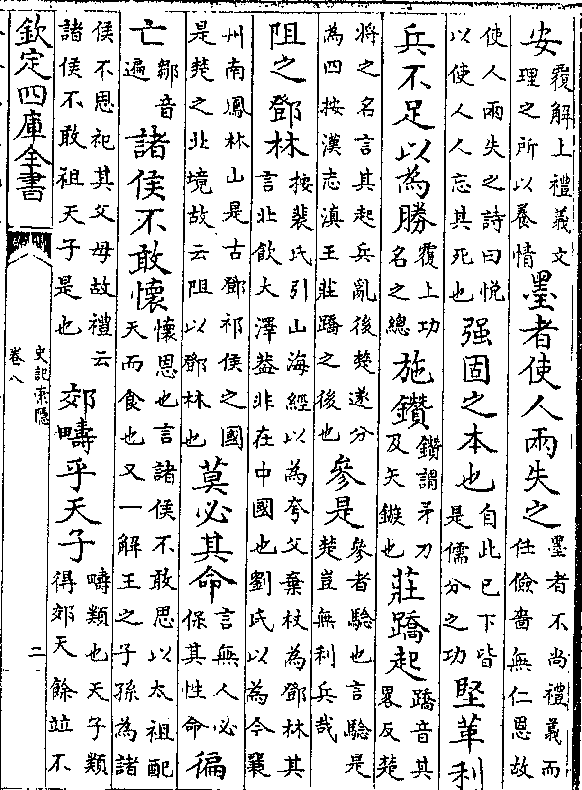 安覆解上禮義文理之所以養情墨者使人兩失之墨者不尚禮義而任儉嗇無仁恩故
使人兩失之詩曰悅以使人人忘其死也强固之本也自此已下皆是儒分之功堅革利
兵不足以為勝覆上功名之總施鑽鑽謂矛刀及矢鏃也莊蹻起蹻音其畧反楚
將之名言其起兵亂後楚遂分為四按漢志滇王莊蹻之後也參是參者驗也言驗是楚豈無利兵哉
阻之鄧林按裴氏引山海經以為夸父棄杖為鄧林其言北飲大澤葢非在中國也劉氏以為今襄
州南鳳林山是古鄧祁侯之國是楚之北境故云阻以鄧林也莫必其命言無人必保其性命徧
亡鄒音遍諸侯不敢懷懷恩也言諸侯不敢思以太祖配天而食也又一解王之子孫為諸
侯不恩祀其父母故禮云諸侯不敢祖天子是也郊疇乎天子疇類也天子類得郊天餘竝不
欽定四庫全書
史記索隱
卷八
二